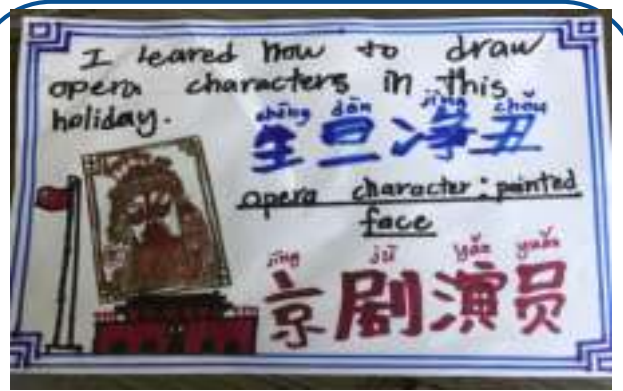 I leared how to draw
opera characters in this
holiday.
shēng dàn jìng chǒu
生旦净丑
opera character: painted
face
jīng jù yǎn yuán
京剧演员